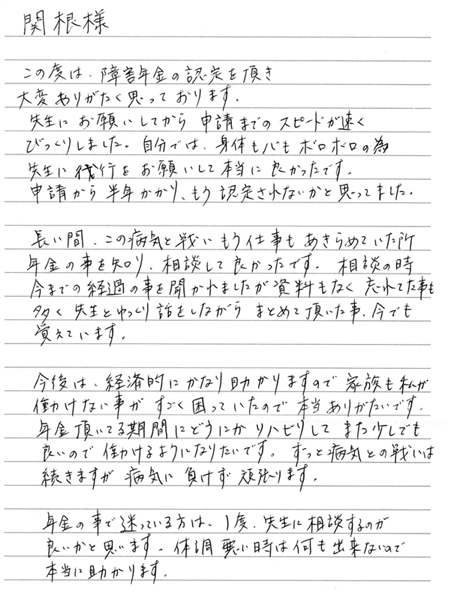 関根様
この度は、障害年金の認定を頂き
大変ありがたく思っております。
先生にお願いしてから 申請までのスピードが速く
びっくりしました。自分では、身体も心もボロボロの為
先生に代行をお願いして本当に良かったです。
申請から半年かかり、もう認定されないかと思ってました。
長い間、この病気と戦い もう仕事も あきらめていた所
年金の事を知り、相談して良かったです。 相談の時
今までの経過の事を聞かれましたが資料もなく 忘れてた事も
多く 先生とゆっくり話をしながら まとめて頂いた事、今でも
覚えています。
今後は、経済的にかなり助かりますので 家族も私が
働けない事が すごく困っていたので 本当ありがたいです。
年金頂いてる期間にどうにか リハビリして また少しでも
良いので 働けるようになりたいです。 ずっと病気との戦いは
続きますが 病気に 負けず 頑張ります。
年金の事で迷っている方は、1度、先生に相談するのが
良いかと思います。体調 悪い時は何も出来ないので
本当に助かります。